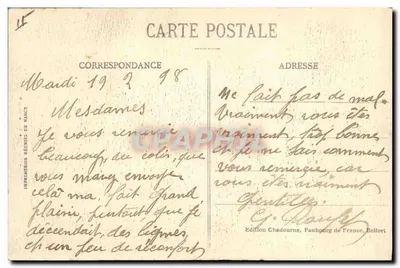 CARTE POSTALE
CORRESPONDANCE
Mardi 19 2 98
Mesdames
Je vous remercie
beaucoup du colis, que
vous m'avez envoyé
cela m'a fait grand
plaisir, surtout que je
descendait des lignes,
et un peu de réconfort
ADRESSE
me fait pas de mal
vraiment vous êtes
vraiment trop bonne
et je ne sais comment
vous remercie car
vous êtes vraiment
gentilles
G.
Edition Chadourne, Faubourg de France, Belfort
IMPRIMERIES RÉUNIES DE NANCY